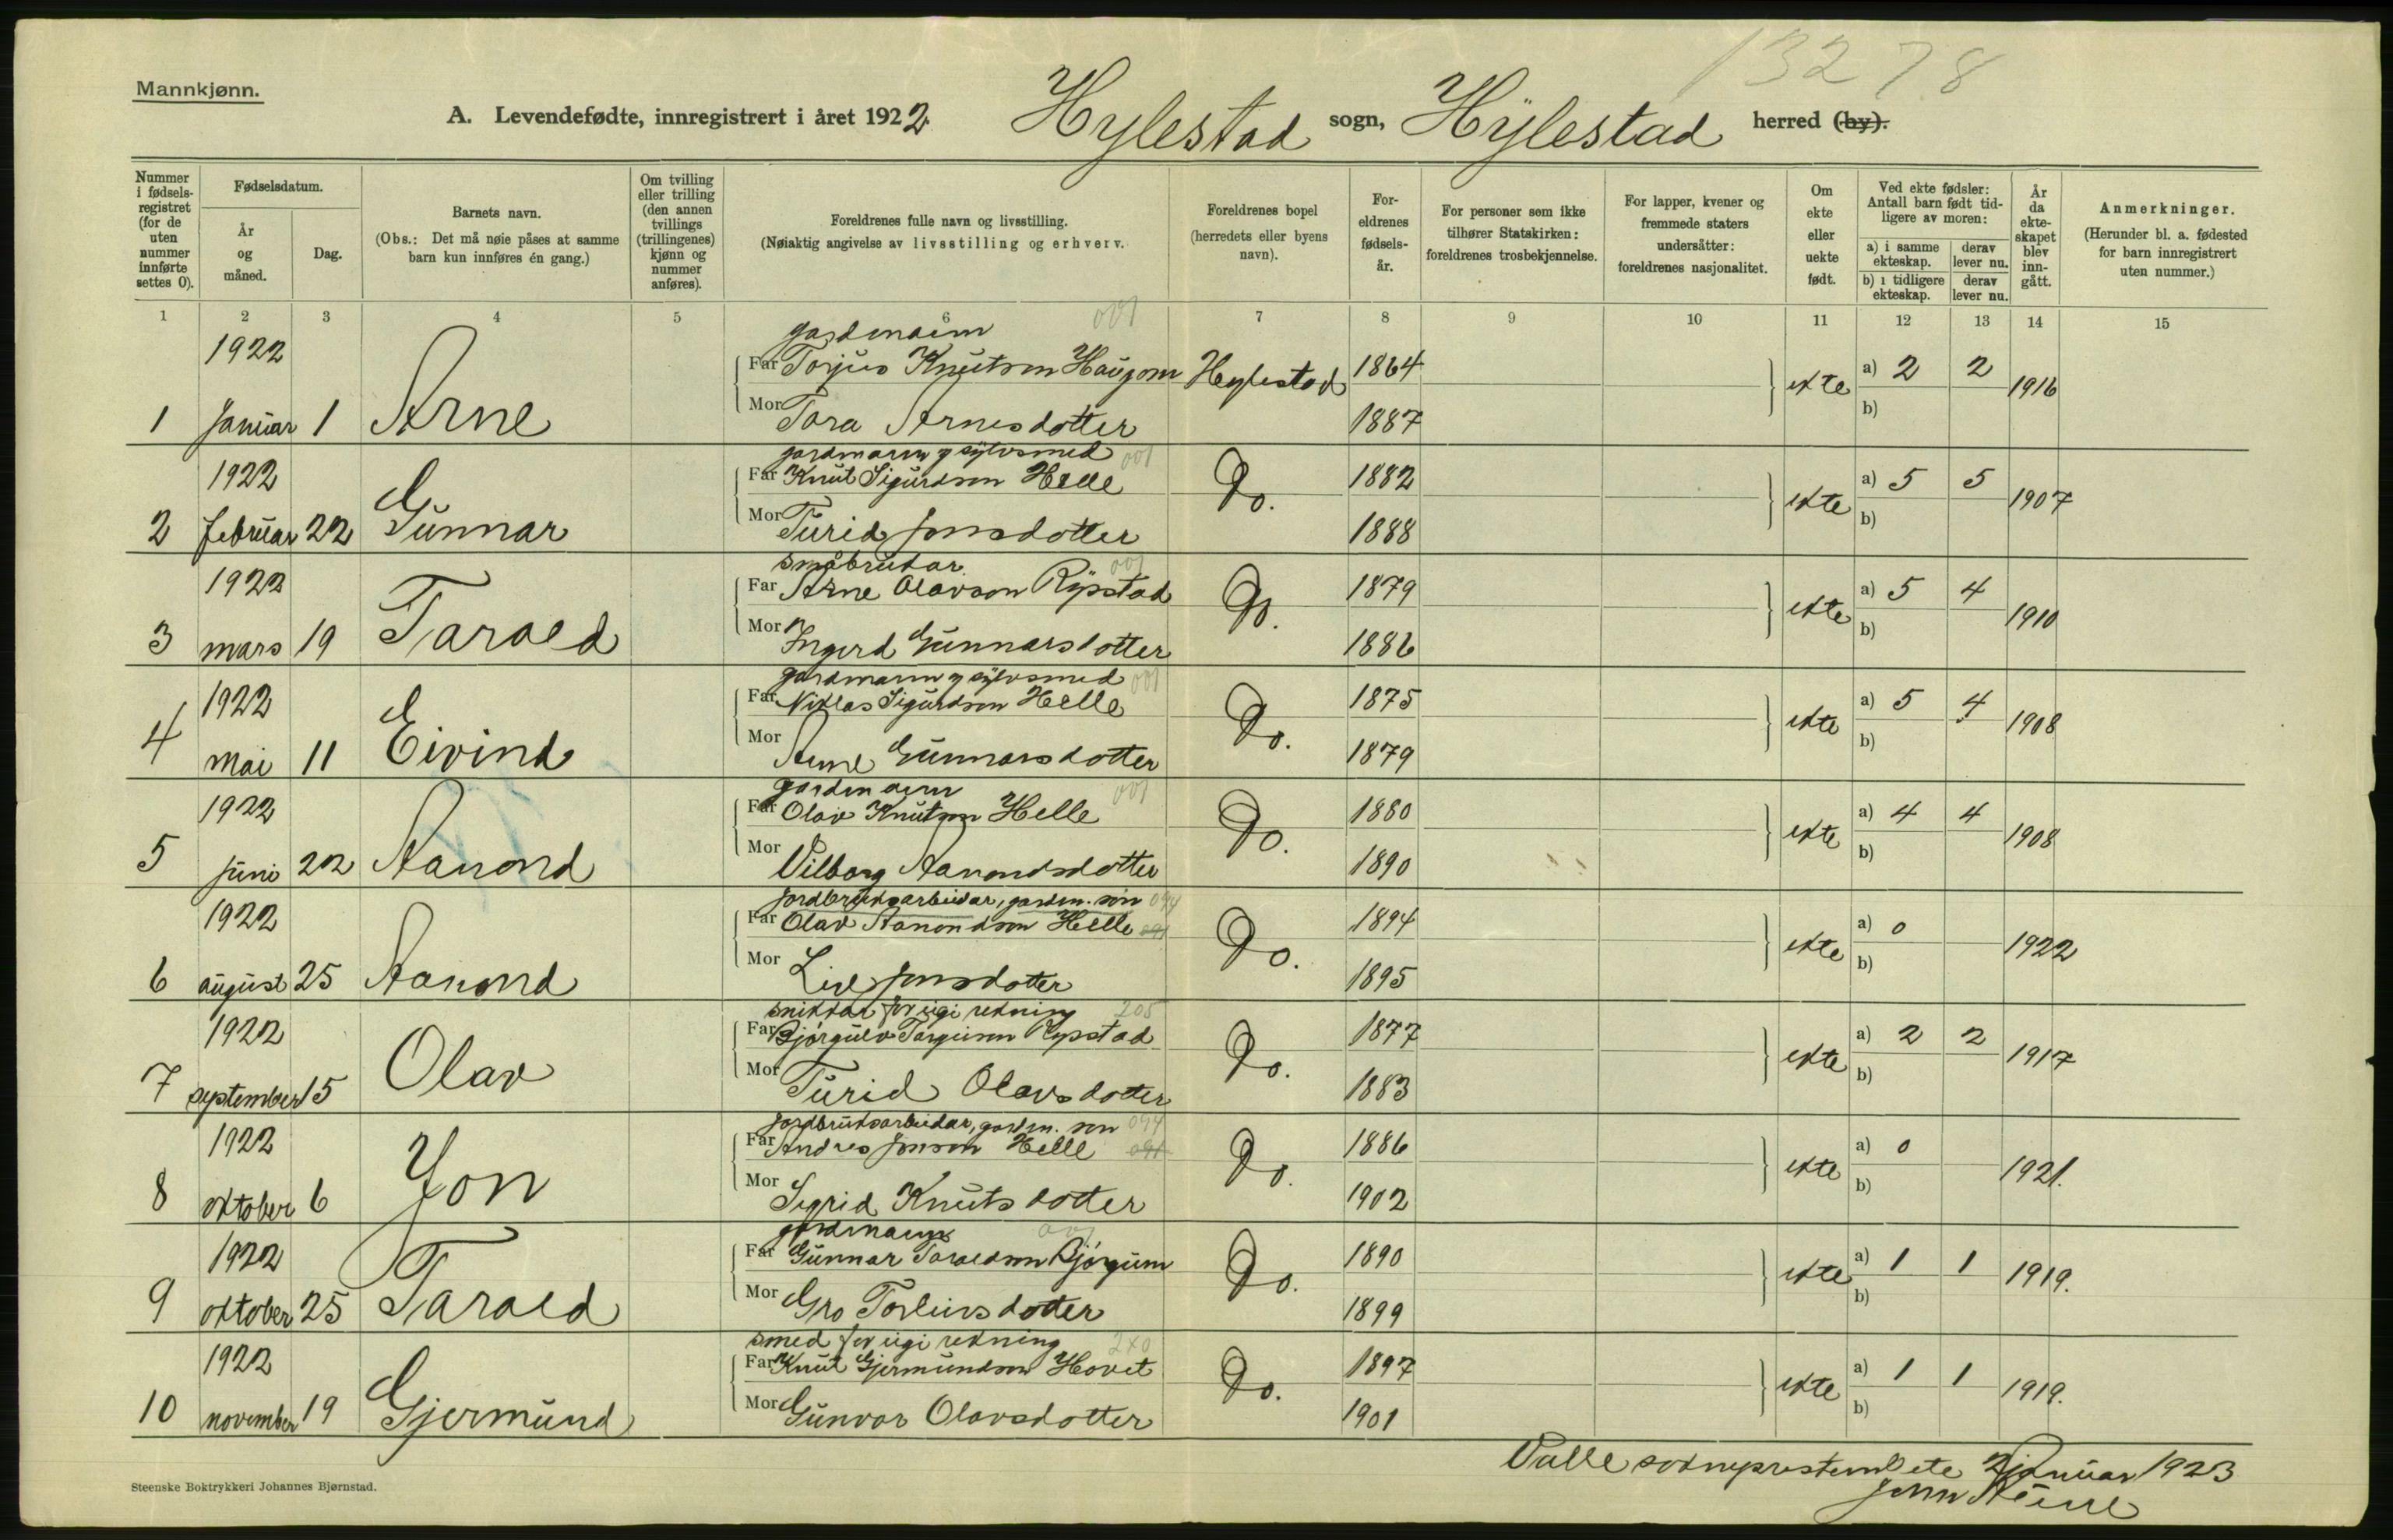 13278
Mannkjønn.
A. Levendefødte, innregistrert i året 1922. Hylestad sogn, Hylestad herred (by).
Nummer i fødsels-registret (for de uten nummer innførte settes 0).
Fødselsdatum.
År og måned.
Dag.
Barnets navn.
(Obs.: Det må nøie påses at samme barn kun innføres én gang.)
Om tvilling eller trilling (den annen tvillings (trillingenes) kjønn og nummer anføres).
Foreldrenes fulle navn og livsstilling.
(Nøiaktig angivelse av livsstilling og erhverv.
Foreldrenes bopel (herredets eller byens navn).
For-eldrenes fødsels-år.
For personer som ikke tilhører Statskirken: foreldrenes trosbekjennelse.
For lapper, kvener og fremmede staters undersåtter: foreldrenes nasjonalitet.
Om ekte eller uekte født.
Ved ekte fødsler: Antall barn født tid-ligere av moren:
a) i samme ekteskap. derav lever nu.
b) i tidligere ekteskap. derav lever nu.
År da ekte-skapet blev inn-gått.
Anmerkninger.
(Herunder bl. a. fødested for barn innregistrert uten nummer.)
1 2 3 4 5 6 7 8 9 10 11 12 13 14 15
1922 gardmann 001
Far Torjus Knutson Haugom Hylestad 1864 ekte a) 2 2 1916
1 januar 1 Arne Mor Tora Arnesdotter 1887 b)
1922 gardmann og sylvsmed 001
Far Knut Sigurdson Helle Do. 1882 ekte a) 5 5 1907
2 februar 22 Gunnar Mor Turid Jonsdotter 1888 b)
1922 småbrukar 001
Far Arne Olavson Rystad Do. 1879 ekte a) 5 4 1910
3 mars 19 Tarald Mor Ingerd Gunnarsdotter 1886 b)
1922 gardmann og sylvsmed 001
Far Niklas Sigurdson Helle Do. 1875 ekte a) 5 4 1908
4 mai 11 Eivind Mor Anne Gunnarsdotter 1879 b)
1922 gardmann 001
Far Olav Knutson Helle Do. 1880 ekte a) 4 4 1908
5 juni 22 Aanond Mor Vilborg Aanondsdotter 1890 b)
1922 jordbruksarbeidar, gardm. son 094
Far Olav Aanondson Helle Do. 1894 ekte a) 0 1922
6 august 25 Aanond Mor Liv Jonsdotter 1895 b)
1922 snikkar for eigi rekning 205
Far Bjørgulv Torgeirson Rystad Do. 1877 ekte a) 2 2 1917
7 september 15 Olav Mor Turid Olavsdotter 1883 b)
1922 jordbruksarbeidar, gardm. son 094
Far Andres Jonson Helle Do. 1886 ekte a) 0 1921.
8 oktober 6 Jon Mor Sigrid Knutsdotter 1902 b)
1922 gardmann 001
Far Gunnar Taraldson Bjørgum Do. 1890 ekte a) 1 1 1919.
9 oktober 25 Tarald Mor Gro Torleivsdotter 1899 b)
1922 smed for eigi rekning 240
Far Knut Gjermundson Hovet Do. 1897 ekte a) 1 1 1919.
10 november 19 Gjermund Mor Gunvor Olavsdotter 1901 b)
Valle sokneprestembete 2 januar 1923
Steenske Boktrykkeri Johannes Bjørnstad.